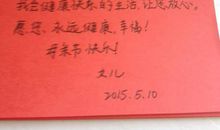 我会健康快乐的生活,让您放心。
愿您,永远健康,幸福!
母亲节快乐!
女儿
2015.5.10